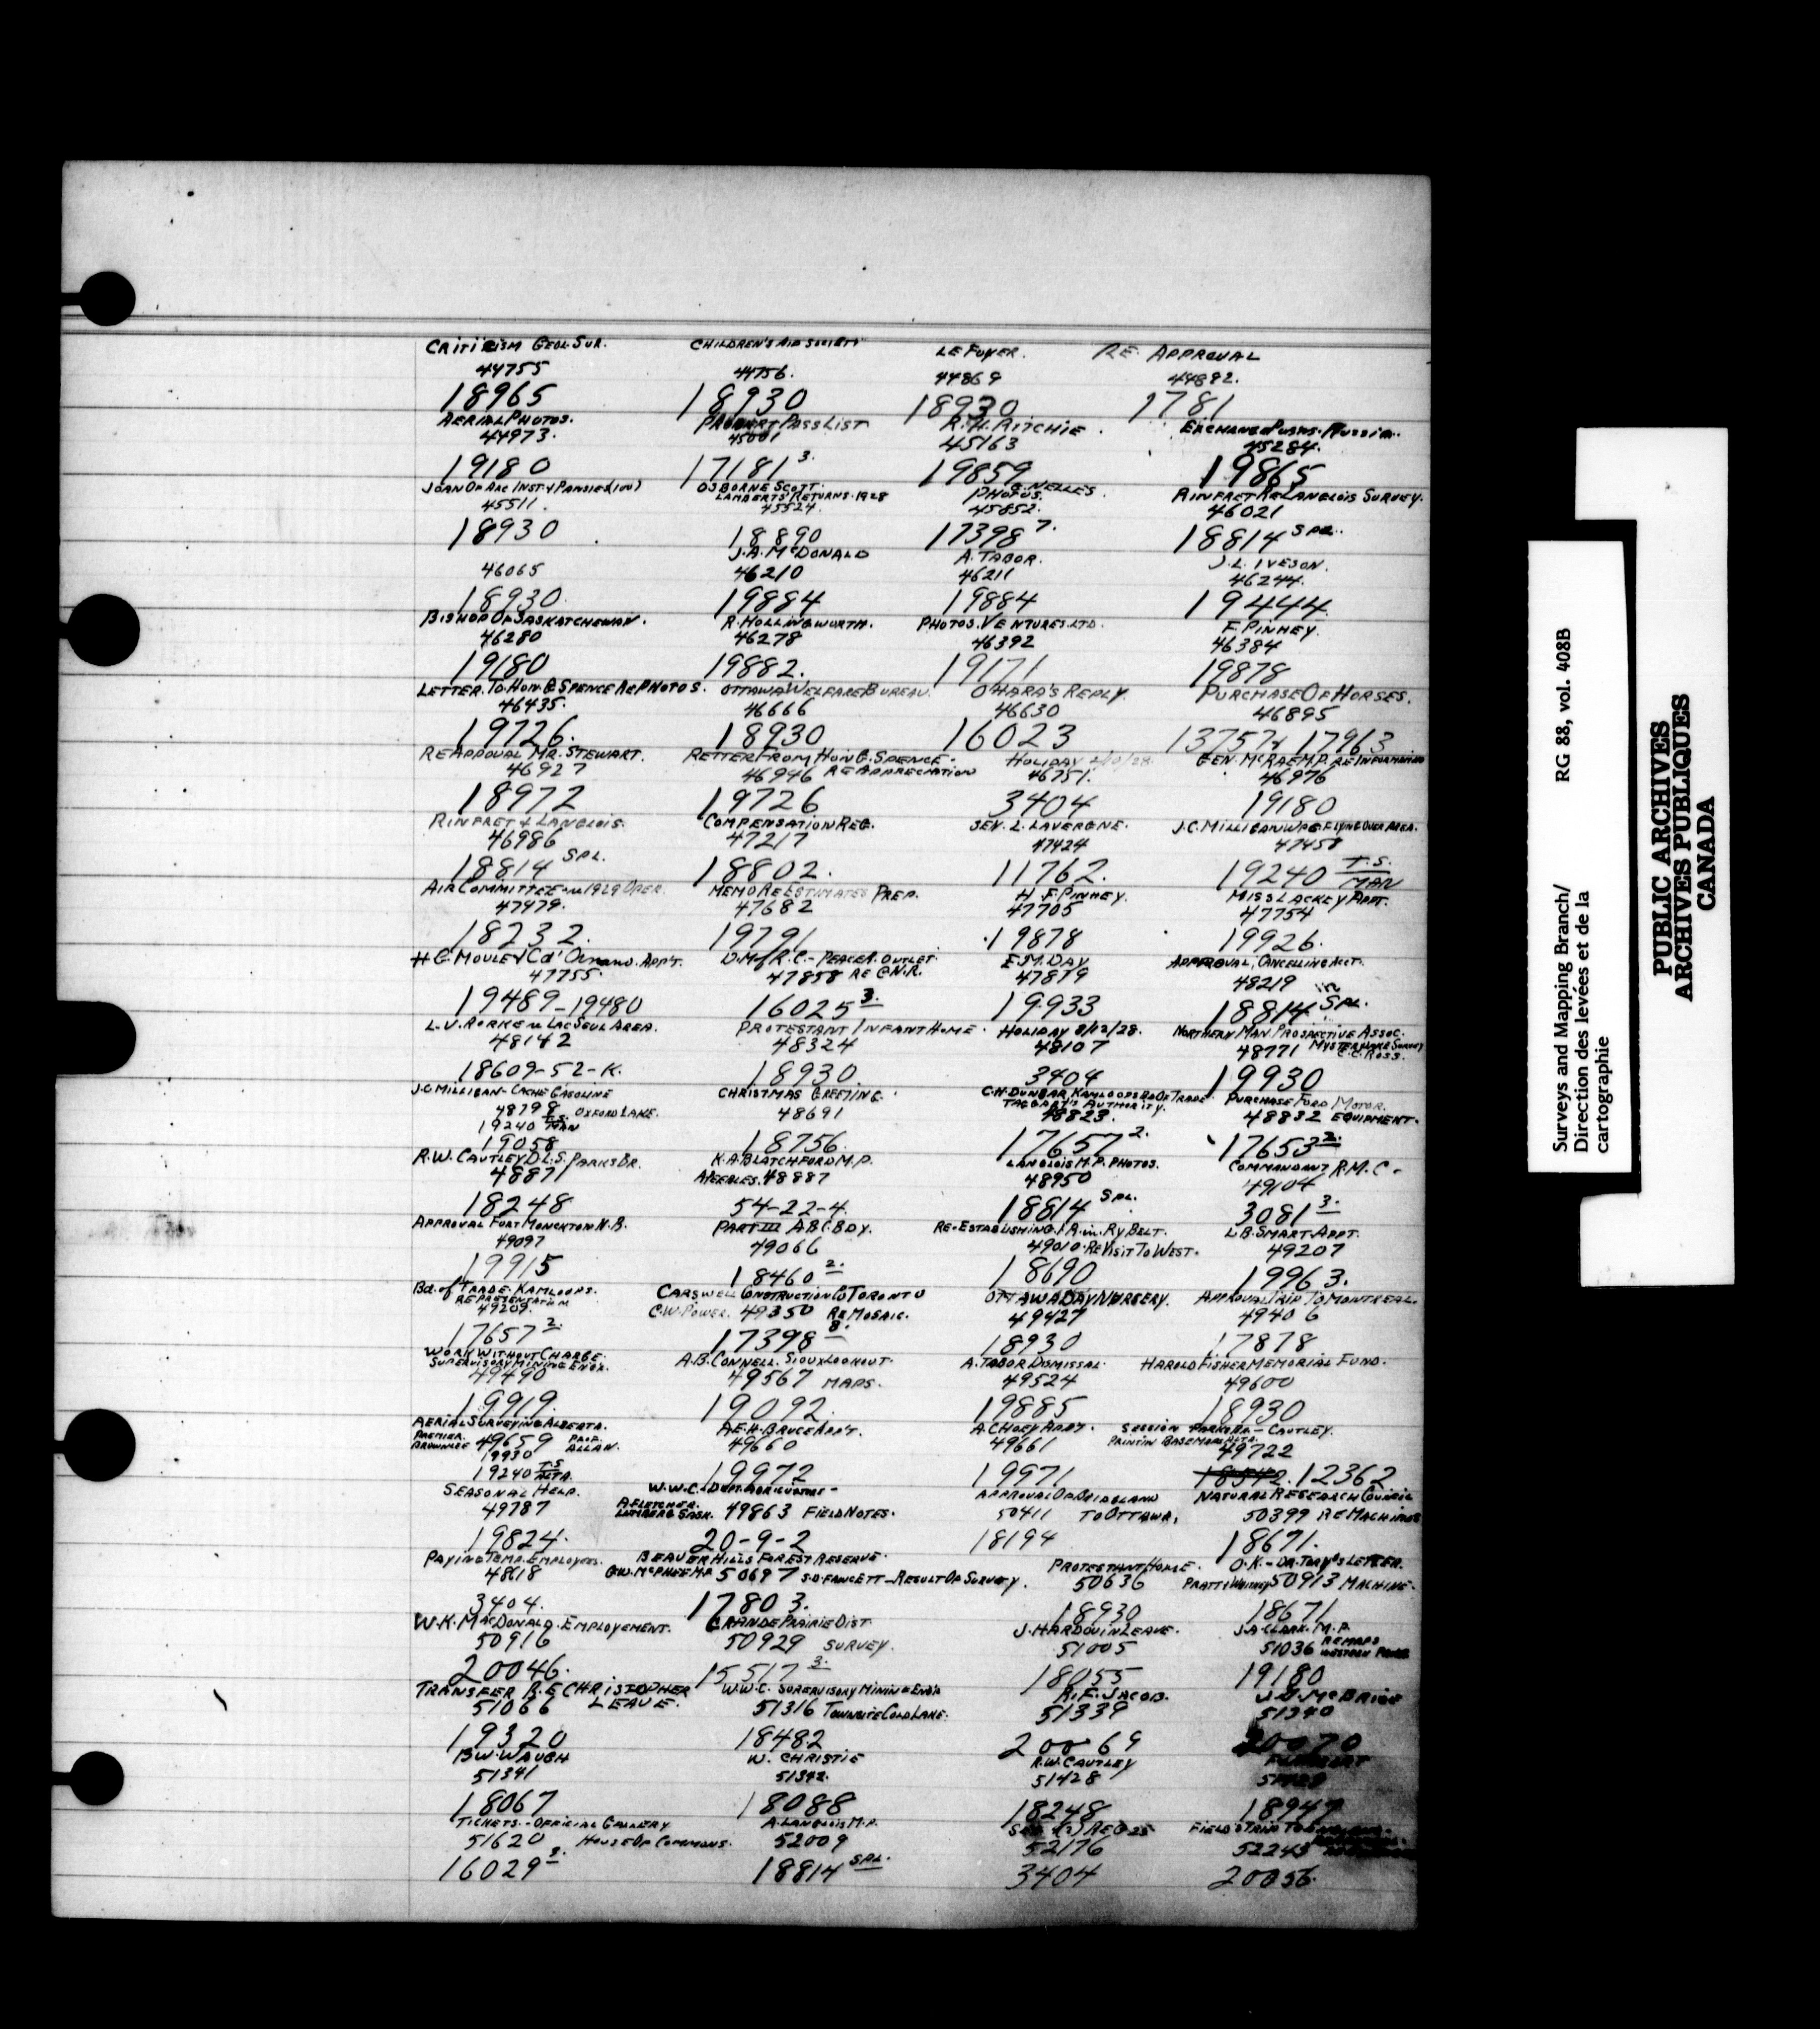 CRITICISM GEOL. SUR. CHILDREN'S AID SOCIETY LE FOYER. RE. APPROVAL
44755 44756. 44869 44892.
18965 18930 18930 1781
AERIAL PHOTOS. PASS LIST R.H. RITCHIE. EXCHANGE PUBNS. RUSSIA.
44973. 45001 45163 45284.
19180 17181 3. 19859 19865
JOAN OF ARC INST. & PANSIED (100) OSBORNE SCOTT. G. NELLES. RINFRET RE LANGLOIS SURVEY.
LAMBERTS' RETURNS. 1928 PHOTOS.
45511. 45524. 45852. 46021
18930 18890 17398 7. 18814 SPL.
J.A. McDONALD A. TABOR. J.L. IVESON.
46065 46210 46211 46244.
18930. 19884 19884 19444.
BISHOP OF SASKATCHEWAN. R. HOLLINGWORTH. PHOTOS. VENTURES. LTD. F. PINHEY.
46280 46278 46392 46384
19180 19882. 19171 19878
LETTER. TO HON. G. SPENCE RE PHOTOS. OTTAWA WELFARE BUREAU. O'HARA'S REPLY. PURCHASE OF HORSES.
46435. 46666 46630 46895
19726. 18930 16023 13757 & 17963
RE APPOVAL MR. STEWART. RETTER FROM HON G. SPENCE. HOLIDAY /28. GEN. McRAE M.P. RE INFORMATION
46927 46946 RE APPRECIATION 46751. 46976
18972 19726 3404 19180
RINFRET & LANGLOIS. COMPENSATION REG. SEV. L. LAVERGNE. J.C. MILLIGAN WPG FLYING OVER AREA.
46986 47217 47424 47458
18814 SPL. 18802. 11762. 19240 T.S. MAN
AIR COMMITTEE re 1929 OPER. MEMO RE ESTIMATES PREP. H. F. PINHEY. MISS LACKEY APPT.
47479. 47682 47705 47754
18232. 19791 19878 19926.
H.G. MOULEY Cd' Ornano. APPT. D.M. of R.C. - PEACE R. OUTLET. E.M. DAY APPROVAL, CANCELLING ACCT.
47755. 47858 RE C.N.R. 47879 48219
19489-19480 16025 3. 19933 18814 SPL.
L.V. RORKE re LAC SEUL AREA. PROTESTANT INFANT HOME. HOLIDAY 8/12/28. NORTHERN MAN PROSPECTIVE ASSOC.
48142 48324 48107 48771 MYSTERY LAKE SURVEY C.C. ROSS.
18609-52-K. 18930. 3404 19930
J.C. MILLIGAN - CACHE GASOLINE CHRISTMAS GREETING. C.H. DUNBAR, KAMLOOPS BD OF TRADE. PURCHASE FORD MOTOR.
48798 OXFORD LAKE. 48691 TAGGART'S AUTHORITY. 48823. 48832 EQUIPMENT.
19240 T.S. MAN
19058 18756. 17657 2. 17653 2.
R.W. CAUTLEY D.L.S. PARKS BR. K.A. BLATCHFORD M.P. LANGLOIS M.P. PHOTOS. COMMANDANT R.M.C.
48871 A PEEBLES. 48887 48950 49104
18248 54-22-4. 18814 SPL. 3081 3.
APPROVAL FORT MONCKTON N.B. PART III A.B.C. BDY. RE-ESTABLISHING I.R. in. RY BELT. L.B. SMART. APPT.
49097 49066 49010. RE VISIT TO WEST. 49207
19915 18460 2. 18690 19963.
Bd. of TRADE. KAMLOOPS. CARSWELL CONSTRUCTION CO TORONTO OTTAWA DAY NURSERY. APPROVAL TRIP TO MONTREAL.
REPRESENTATION 49209. C.W. POWER. 49350 RE MOSAIC. 49427 49406
17657 2. 17398 8. 18930 17878
WORK WITHOUT CHARGE. A.B. CONNELL. SIOUX LOOKOUT. A. TABOR DISMISSAL. HAROLD FISHER MEMORIAL FUND.
SUPERVISORY MINING ENGR.
49490 49567 MAPS. 49524 49600
19919. 19092. 19885 18930
AERIAL SURVEYING ALBERTA. A.E.H. BRUCE APP'T. A.C. HOEY APPT. SESSION PARKS BR - CAUTLEY.
PREMIER BROWNLEE 49659 PROF. ALLAN. 49660 49661 PRINTIN BASE MAP ALTA. 49722
19930
19240 T.S. ALTA. 19972 19971 18542. 12362
SEASONAL HELP. W.W.C. - DEPT. AGRICULTURE - APPROVAL OF BRIDGLAND NATURAL RESEARCH COUNCIL
49787 A. FLETCHER. LUMBERG SASK. 49863 FIELD NOTES. 50411 TO OTTAWA. 50399 RE MACHINES
19824. 20-9-2 18194 18671.
PAYING TEMP. EMPLOYEES. BEAVER HILLS FOREST RESERVE. PROTESTANT HOME. O.K. - DR. TORY'S LETTER.
48618 G.W. McPHEE M.P. 50697 S.D. FAWCETT - RESULT OF SURVEY. 50636 PRATT & WHITNEY 50913 MACHINE.
3404. 17803. 18930 18671
W.K. MacDONALD. EMPLOYEMENT. GRANDE PRAIRIE DIST. J. HARDOUIN LEAVE. J.A. CLARK. M.P.
50916 50929 SURVEY. 51005 51036 RE MAPS WESTERN
20046. 15517 3. 18055 19180
TRANSFER R.E CHRISTOPHER W.W.C. SUPERVISORY MINING ENG'R R.F. JACOB. J.G. McBRIDE
51066 LEAVE. 51316 TOWNSITE COLD LAKE. 51339 51340
19320 18482 20069 20070
B.W. WAUGH W. CHRISTIE R.W. CAUTLEY
51341 51342. 51428
18067 18088 18248 18947
TICKETS. - OFFICIAL GALLERY A. LANGLOIS M.P. REG. 25 FIELD
51620 HOUSE OF COMMONS. 52009 52176 52243
16029 2. 18814 SPL. 3404 20056.
Surveys and Mapping Branch/ RG 88, vol. 408B
Direction des levées et de la
cartographie
PUBLIC ARCHIVES
ARCHIVES PUBLIQUES
CANADA